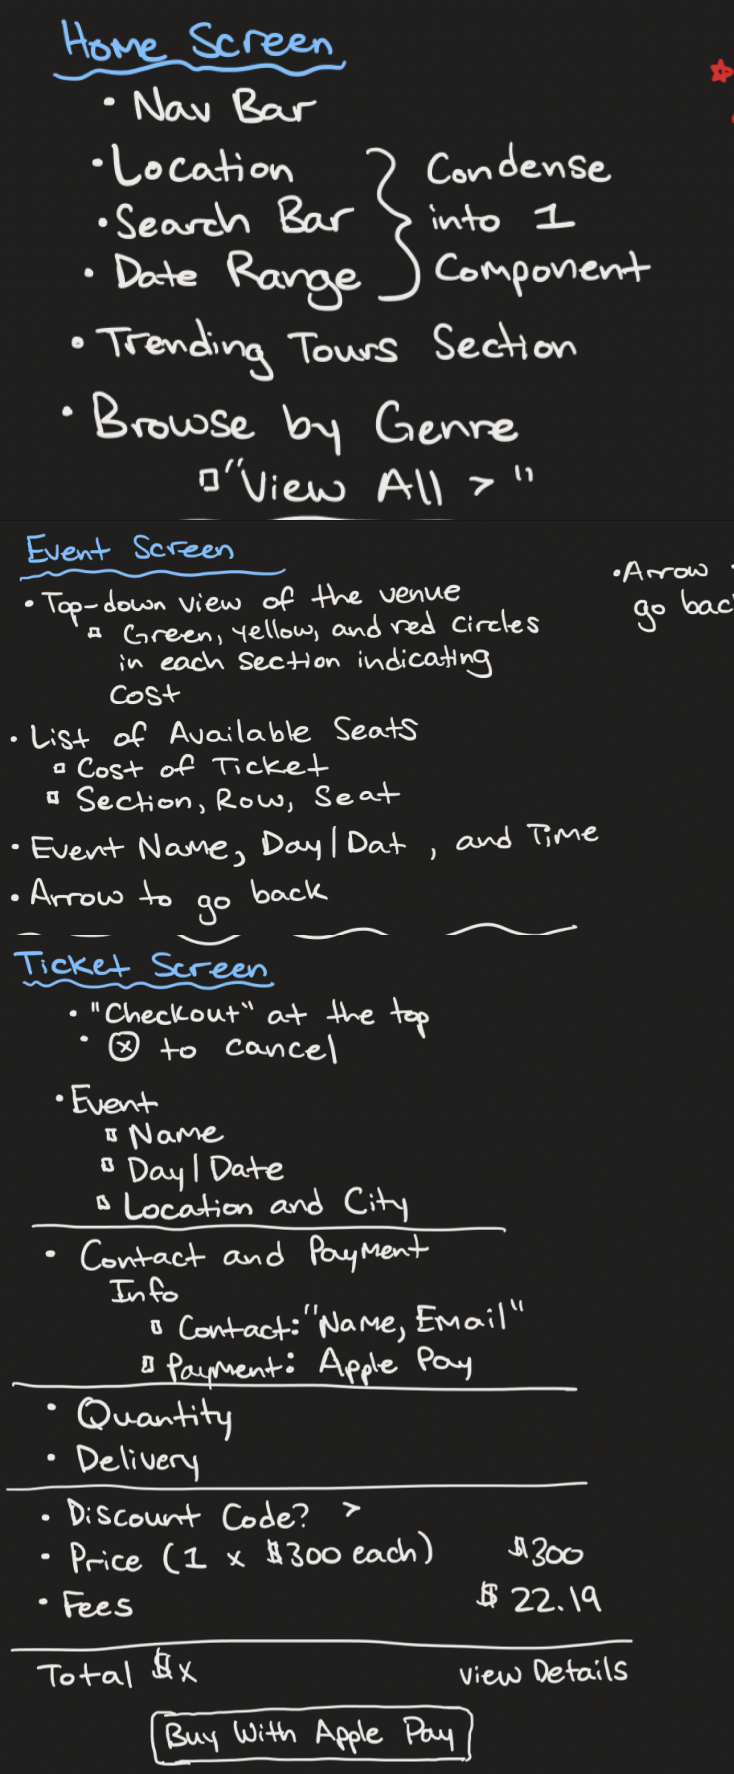 Home Screen
• Nav Bar
• Location
• Search Bar
• Date Range
Condense
into 1
Component
• Trending Tours Section
• Browse by Genre
"View All > "
Event Screen
• Top-down view of the venue
Green, yellow, and red circles
in each section indicating
cost
• Arrow
go bac
• List of Available Seats
Cost of Ticket
Section, Row, Seat
• Event Name, Day|Dat , and Time
• Arrow to go back
Ticket Screen
• "Checkout" at the top
• ⓧ to cancel
• Event
Name
Day|Date
Location and City
• Contact and Payment
Info
Contact: "Name, Email"
Payment: Apple Pay
• Quantity
• Delivery
• Discount Code? >
• Price (1 x $300 each) $300
• Fees $ 22.19
Total $x view Details
Buy With Apple Pay